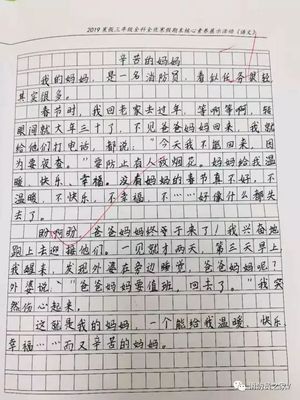 2019寒假三年级全科全效寒假期末核心素养展示活动《语文》
辛苦的妈妈
我的妈妈,是一名消防员,看似任务很轻
其实很多。
春节时,我回老家去过年,等啊等啊,转
眼间就大年三十了,不见爸爸妈妈回来,我就
给他们打电话,都说:“今天我不能回来,因
为要夜查。”要防止有人放烟花。妈妈给我温
暖、快乐、幸福。没有妈妈的春节真不好,不
温暖,不快乐,不幸福,不……好像什么都失
去了。
盼啊盼,爸爸妈妈终于来了!我兴奋地
跑上去迎接他们。一见就才两天,第三天早上
我醒来,发现外婆在旁边睡觉,爸爸妈妈呢?
外婆说:“爸爸妈妈要值班,回去了。”我突
然伤心起来。
这就是我的妈妈,一个能给我温暖、快乐
幸福……而又辛苦的妈妈。
消防员之家